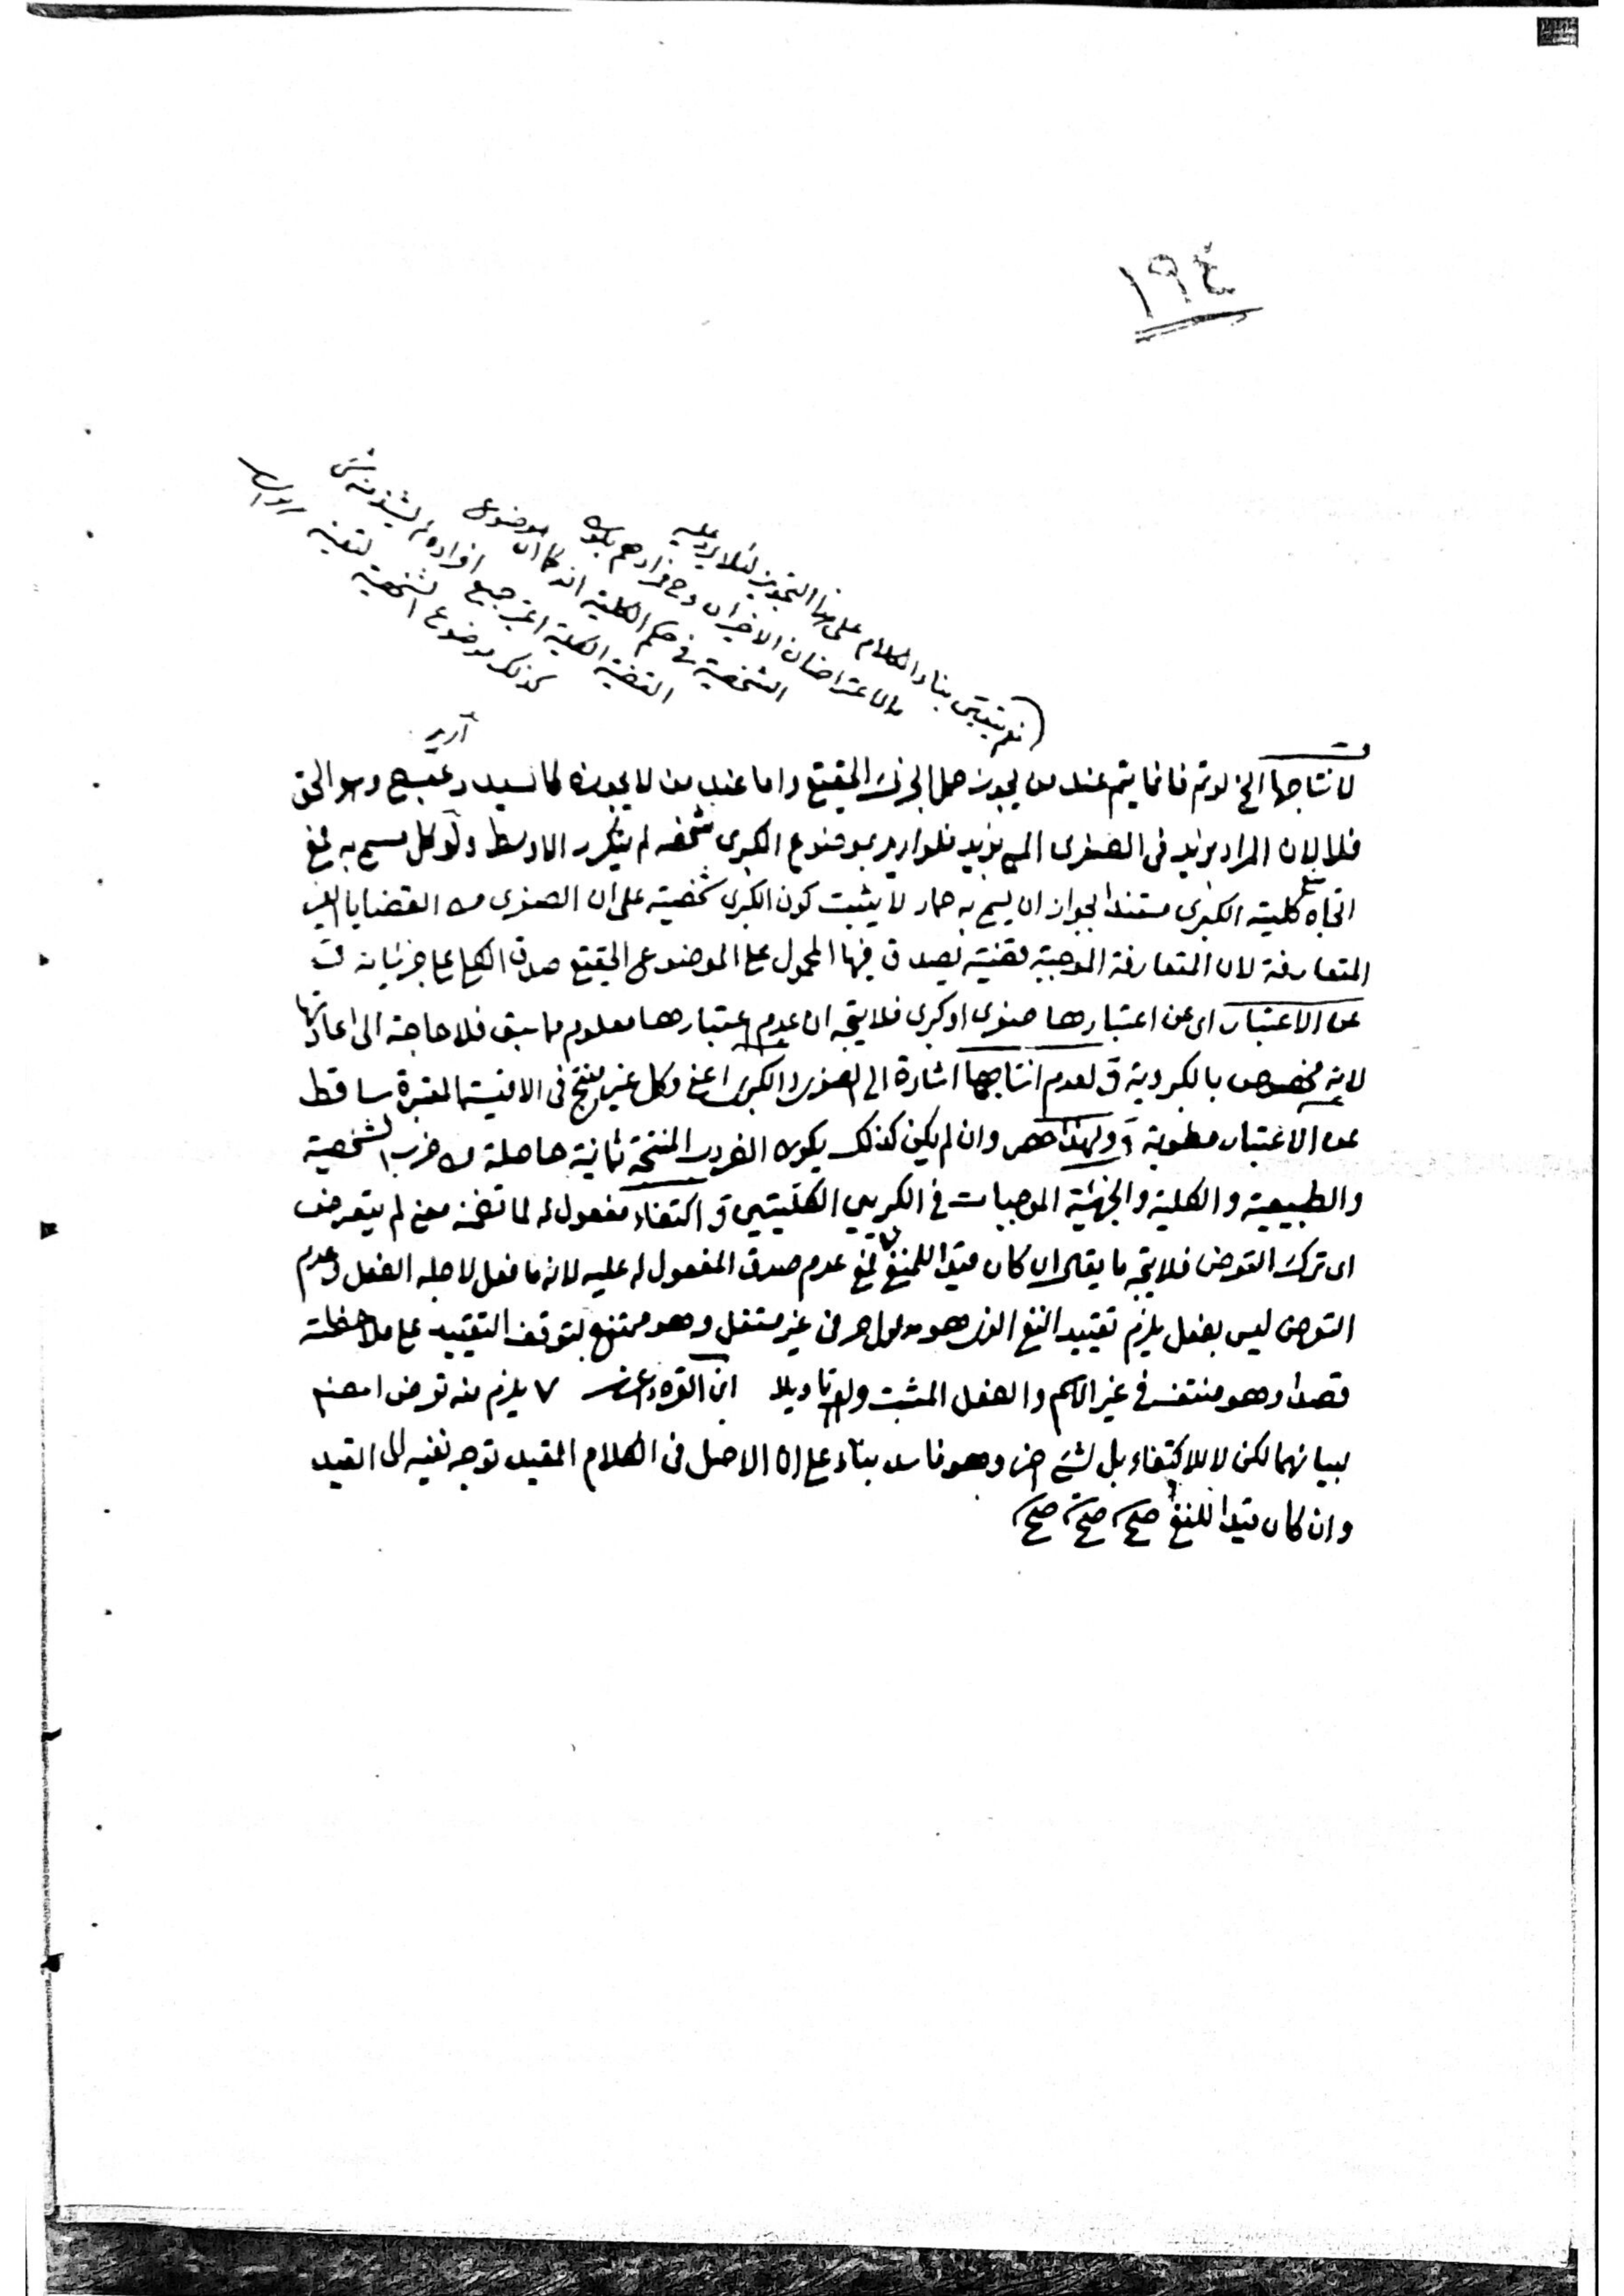 ١٩٤
نعم يتبقى بناء الكلام على هذا التجويز لئلا يرد عليه
الاعتراضان الاخيران وح مرادهم بكون
الشخصية في حكم الكلية انه كما ان موضوع
القضية الكلية اعتبر جميع افراده لم يشذ منه شئ
كذلك موضوع الشخصية لتعينه
لانتاجها الخ لو تم فانما يتم عند من يجوز حمل الجزئي الحقيقي واما عند من لا يجوزه كالسيد وهو الحق
فلا لان المراد بزيد في الصغرى المسمى بزيد فلو اريد بموضوع الكبرى شخصه لم يتكرر الاوسط ولو كل مسمى به فمع
اتجاه منع كلية الكبرى مستندا بجواز ان يسمى به حمار لا يثبت كون الكبرى شخصية على ان الصغرى من القضايا الغير
المتعارفة لان المتعارفة الموجبة قضية يصدق فيها المحمول على الموضوع الحقيقي صدق الكلي على جزئياته ق
عن الاعتبار اى عن اعتبارها صغرى او كبرى فلا يتجه ان عدم اعتبارها معلوم مما سبق فلا حاجة الى اعادتها
لانه مخصوص بالكبروية ق لعدم انتاجها اشارة الى الصغرى والكبرى اعني وكل غير منتج في الاقيسة المعتبرة ساقط
عن الاعتبار مطوية ولهذا حصر وان لم يكن كذلك يكون الضروب المنتجة ثمانية حاصلة من ضرب الشخصية
والطبيعية والكلية والجزئية الموجبات في الكبريين الكليتين ق اكتفاء مفعول له لما تضمنه معنى لم يتعرض
اى ترك التعرض فلا يتجه ما يقال ان كان قيدا للمنفي فمع عدم صدق المفعول له عليه لانه ما فعل لاجله الفعل وعدم
التعرض ليس بفعل يلزم تقييد النفي الذي هو مدلول حرف غير مستقل وهو ممتنع لتوقف التقييد على ملاحظته
قصدا وهو منتف في غير الاسم والفعل المثبت ولو تاويلا ابن القره داغي يلزم منه تعرض المصنف
لبيانهما لكن لا للاكتفاء بل لشئ اخر وهو فاسد بناء على ان الاصل في الكلام المقيد توجه نفيه الى القيد
وان كان قيدا للنفي صح صح صح